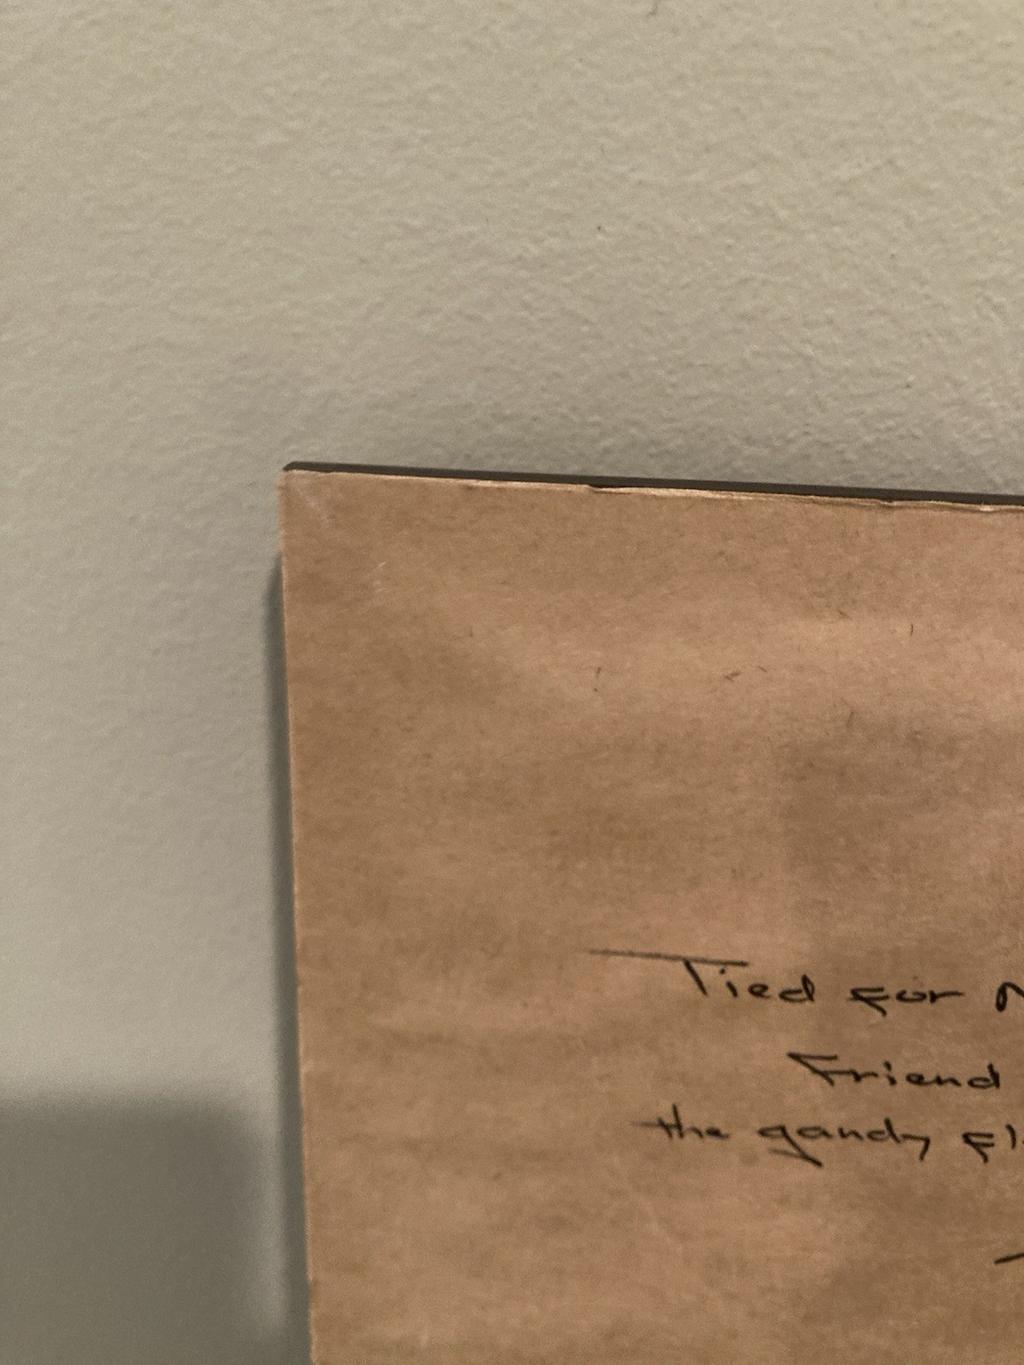 Tied for
Friend
the gandy